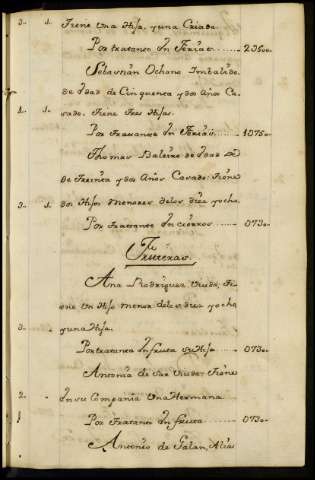 3.. 1. Tiene Una Hija, y una Criada.
Por tratante En Ferias ...... 2350..
Sebastián Ochano Imbalido.
de Edad de Cinquenta y dos Años Ca-
1.. 1. sado. Tiene Tres Hijas.
Por Tratante En Ferias ...... 1075..
Thomas Baleixe de Edad
de Treinta y dos Años Casado. Tiene
3.. 1. dos Hijos menores delos diez y ocho.
Por Tratante En ..... 0730..
Fruteras.
Ana Rodriguez Viuda, Tie-
ne Un Hijo menor delos diez y ocho
3.. y una Hija.
Por tratanta En fruta su Hija .... 0730..
Antonia de Sas Viuda. Tiene
2.. En su Compañia Una Hermana
1.. Por Tratante En fruta ...... 0730..
Antonio de Galan, Alias